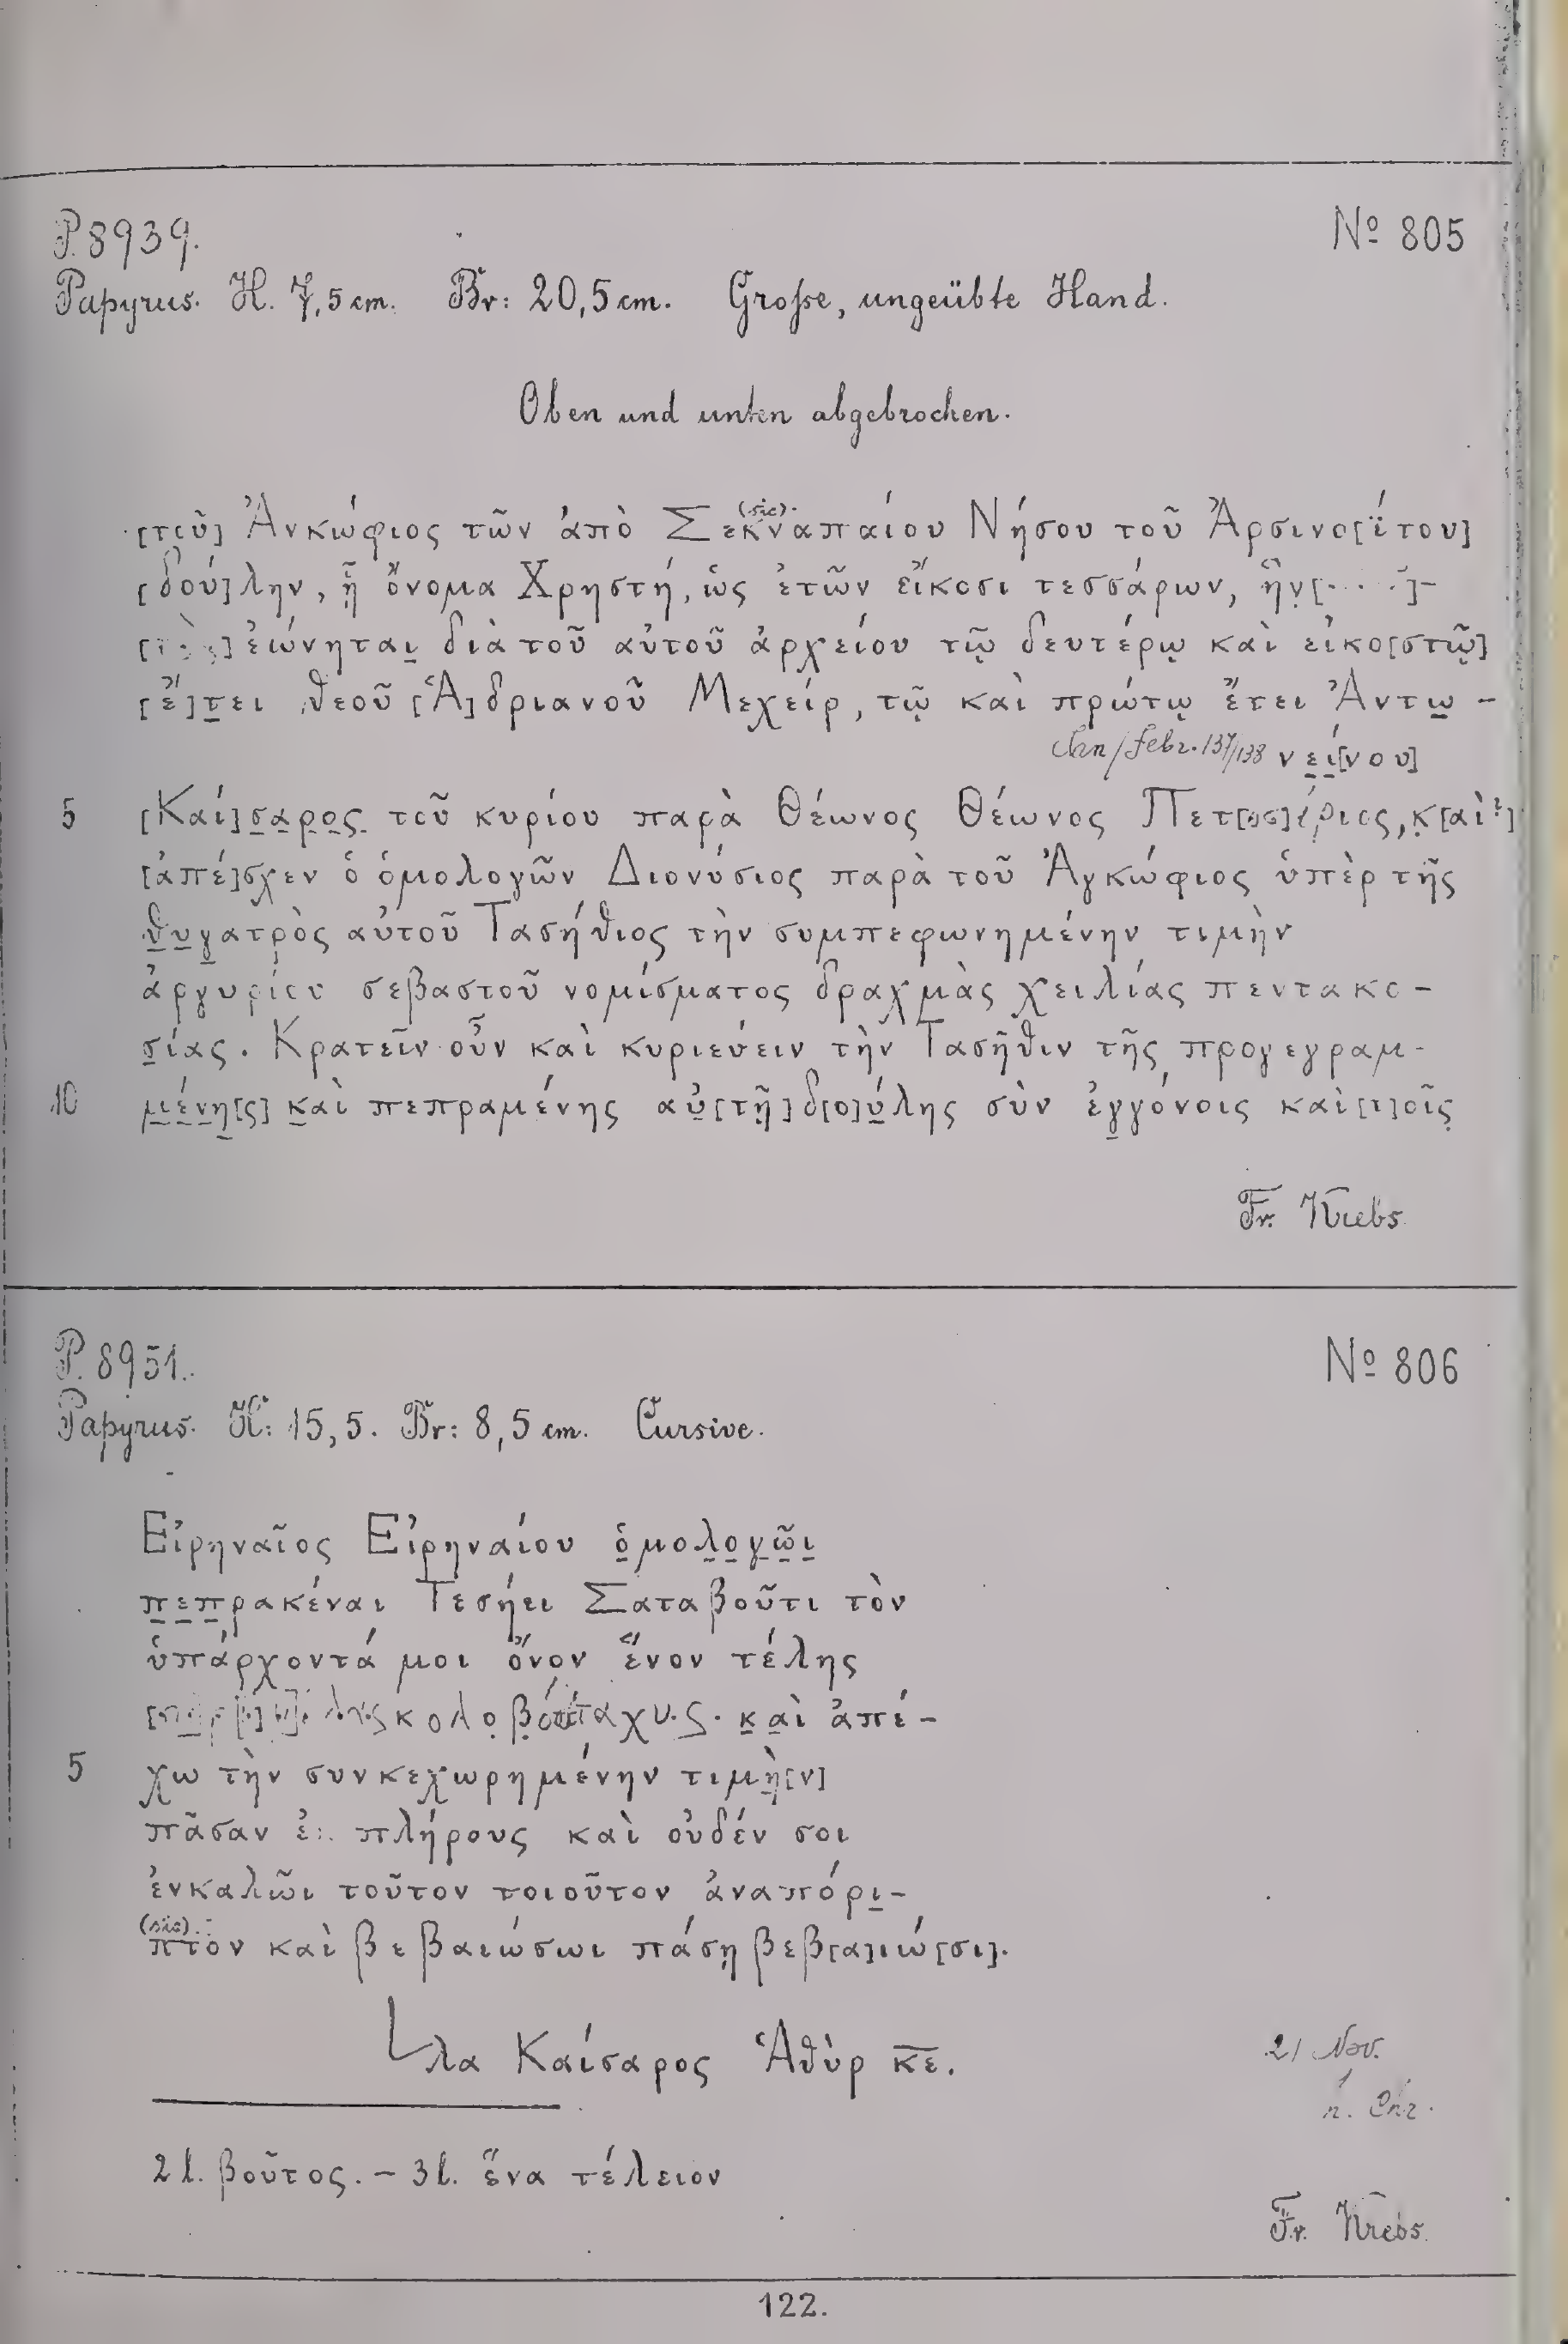 P. 8939. № 805
Papyrus. H. 7,5 cm. Br: 20,5 cm. Große, ungeübte Hand.
Oben und unten abgebrochen.
[τοῦ] Ἀνκώφιος τῶν ἀπὸ Σεκναπαίου (sic) Νήσου τοῦ Ἀρσινο[ΐτου]
[δού]λην, ᾗ ὄνομα Χρηστή, ὡς ἐτῶν εἴκοσι τεσσάρων, ἣν̣[....]-
ἐώνηται̣ διὰ τοῦ αὐτοῦ ἀρχείου τῷ δευτέρῳ καὶ εἰκο[στῷ]
[ἔ]τ̣ει θεοῦ [Ἁ]δριανοῦ Μεχείρ, τῷ καὶ πρώτῳ ἔτει Ἀντω̣-
Jan/Febr. 137/138 νε̣ί̣[νου]
5 [Καί]σ̣α̣ρ̣ο̣ς̣ τοῦ κυρίου παρὰ Θέωνος Θέωνος Πετ[οσ]ίριος, κ̣[αὶ?]
[ἀπέ]σ̣χεν ὁ ὁμολογῶν Διονύσιος παρὰ τοῦ Ἀγκώφιος ὑπὲρ τῆς
θ̣υ̣γ̣ατρὸς αὐτοῦ Τασήθιος τὴν συμπεφωνημένην τιμὴν
ἀργυρίου σεβαστοῦ νομίσματος δραχμὰς χειλίας πεντακο-
σ̣ίας. Κρατεῖν οὖν καὶ κυριεύειν τὴν Τασῆθιν τῆς προγεγραμ-
10 μ̣έ̣ν̣η̣[ς] κ̣αὶ πεπραμένης αὐ̣[τῇ] δ[ο]ύ̣λης σὺν ἐγ̣γόνοις καὶ [τ]οῖς̣
Fr. Krebs
P. 8951. № 806
Papyrus. H: 15,5. Br: 8,5 cm. Cursive.
Εἰρηναῖος Εἰρηναίου ὁ̣μολ̣ο̣γ̣ῶ̣ι̣
π̣ε̣π̣ρακέναι Τεσήει Σαταβοῦτι τὸν
ὑπάρχοντά μοι ὄνον ἕνον τέλης
κ̣αὶ̣ ἀπέ-
5 χω τὴν συνκεχωρημένην τιμὴ̣[ν]
πᾶσαν πλήρους καὶ οὐδέν σοι
ἐνκαλῶι τοῦτον τοιοῦτον ἀναπόρι̣-
(sic) πτον καὶ βεβαιώσωι πάσῃ βεβ[α]ιώ[σι].
L λα Καίσαρος Ἁθὺρ κ̅ε̅.
21 Nov.
1
n. Chr.
2 l. βοῦτος. – 3 l. ἕνα τέλειον
Fr. Krebs
122.